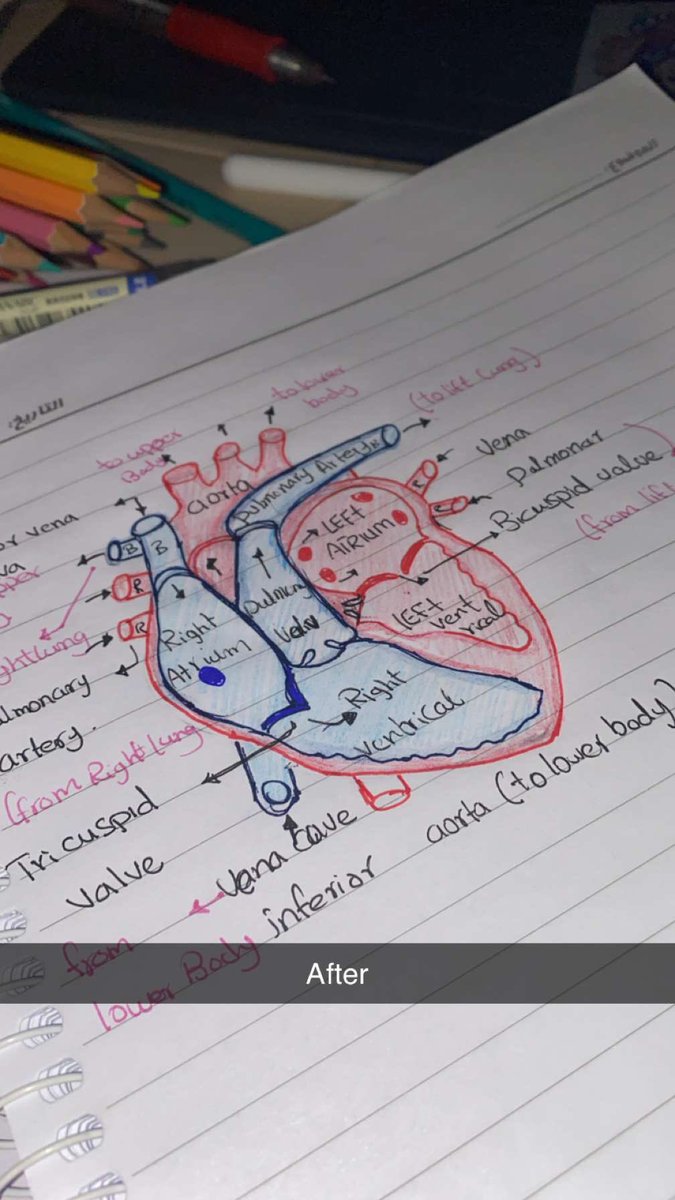 to lower
body
(to lift lung)
to upper
Body
aorta
Pulmonary Artery
Vena
Pulmonar
Bicuspid valve
(from lift
or vena
va
B
B
R
R
LEFT
ATRIUM
LEFT
vent
rical
Right
Atrium
Right
ventrical
ght lung
lmonary
artery.
(from Right lung
Tricuspid
valve
Vena Cave
inferior
aorta (to lower body)
from
lower Body
After